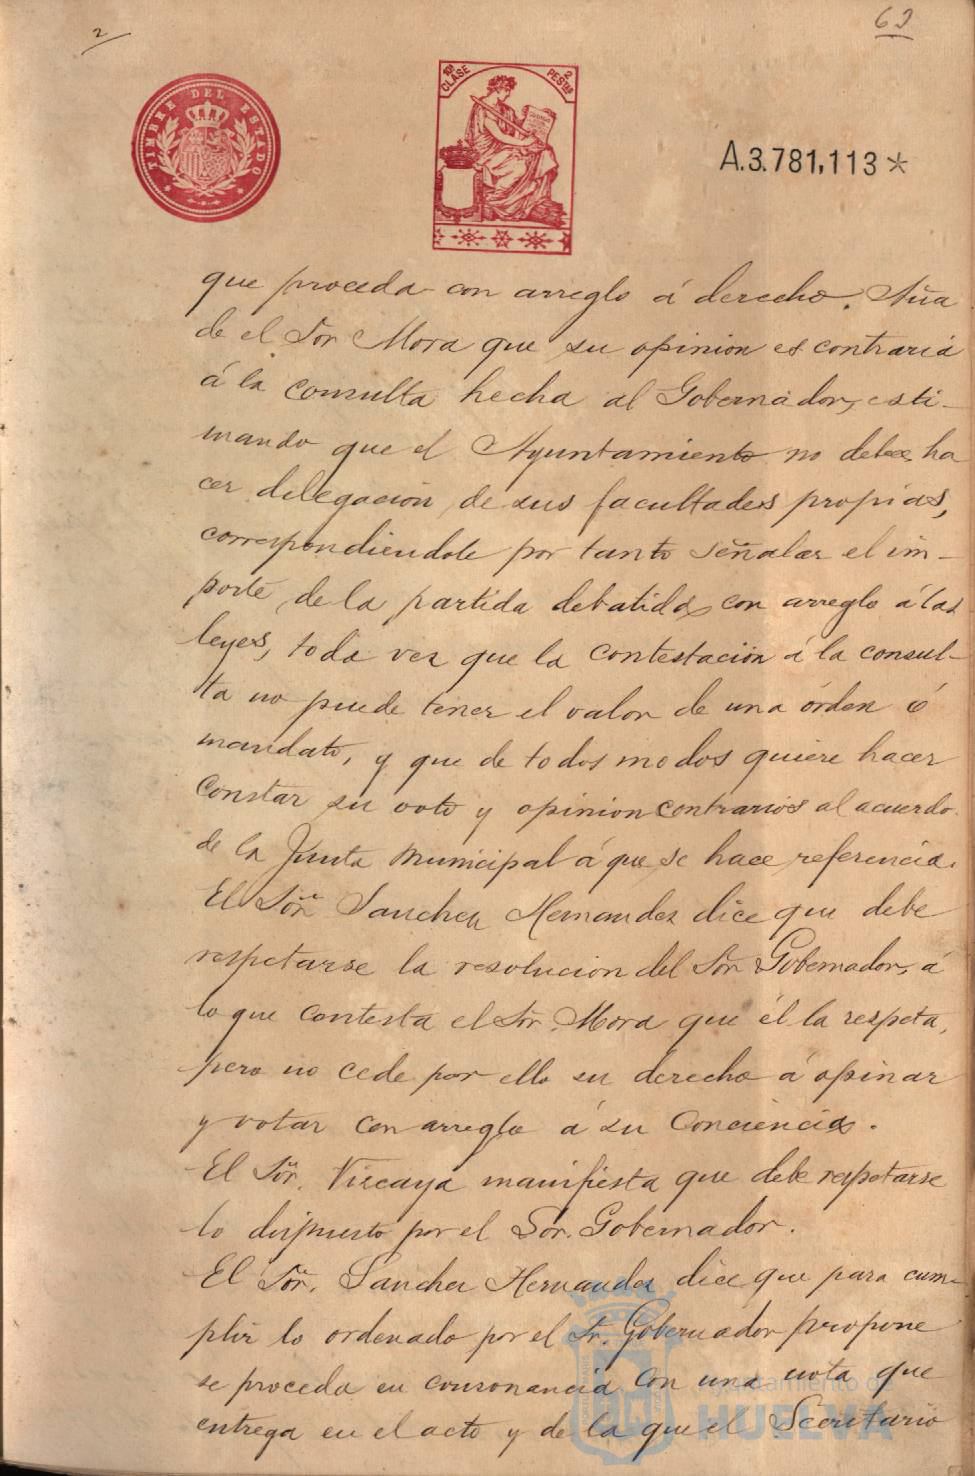 2
62
TIMBRE DEL ESTADO
10ª CLASE
2 PESTAS
A.3.781,113*
que proceda con arreglo á derecho. Aña
de el Sor Mora que su opinion es contraria
á la consulta hecha al Gobernador, esti-
mando que el Ayuntamiento no debe ha
cer delegacion de sus facultades propias,
correspondiendole por tanto señalar el im-
porte de la partida debatida con arreglo á las
leyes, toda vez que la contestacion á la consul-
ta no puede tener el valor de una órden ó
mandato, y que de todos modos quiere hacer
constar su voto y opinion contrarios al acuerdo
de la Junta Municipal á que se hace referencia.
El Sor Sanchez Hernandez dice que debe
respetarse la resolucion del Sor Gobernador, á
lo que contesta el Sor. Mora que él la respeta,
pero no cede por ello su derecho á opinar
y votar con arreglo á su conciencia.
El Sor. Vizcaya manifiesta que debe respetarse
lo dispuesto por el Sor. Gobernador.
El Sor. Sanchez Hernandez dice que para cum-
plir lo ordenado por el Sr. Gobernador propone
se proceda en consonancia con una nota que
entrega en el acto y de la que el Secretario
Ayuntamiento de
HUELVA